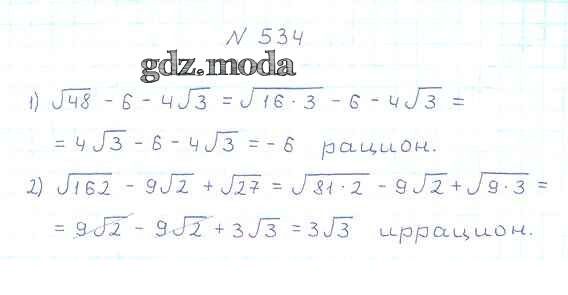 N 534
gdz.moda
1) √48 - 6 - 4√3 = √16 · 3 - 6 - 4√3 =
= 4√3 - 6 - 4√3 = - 6 рацион.
2) √162 - 9√2 + √27 = √81 · 2 - 9√2 + √9 · 3 =
= 9√2 - 9√2 + 3√3 = 3√3 иррацион.